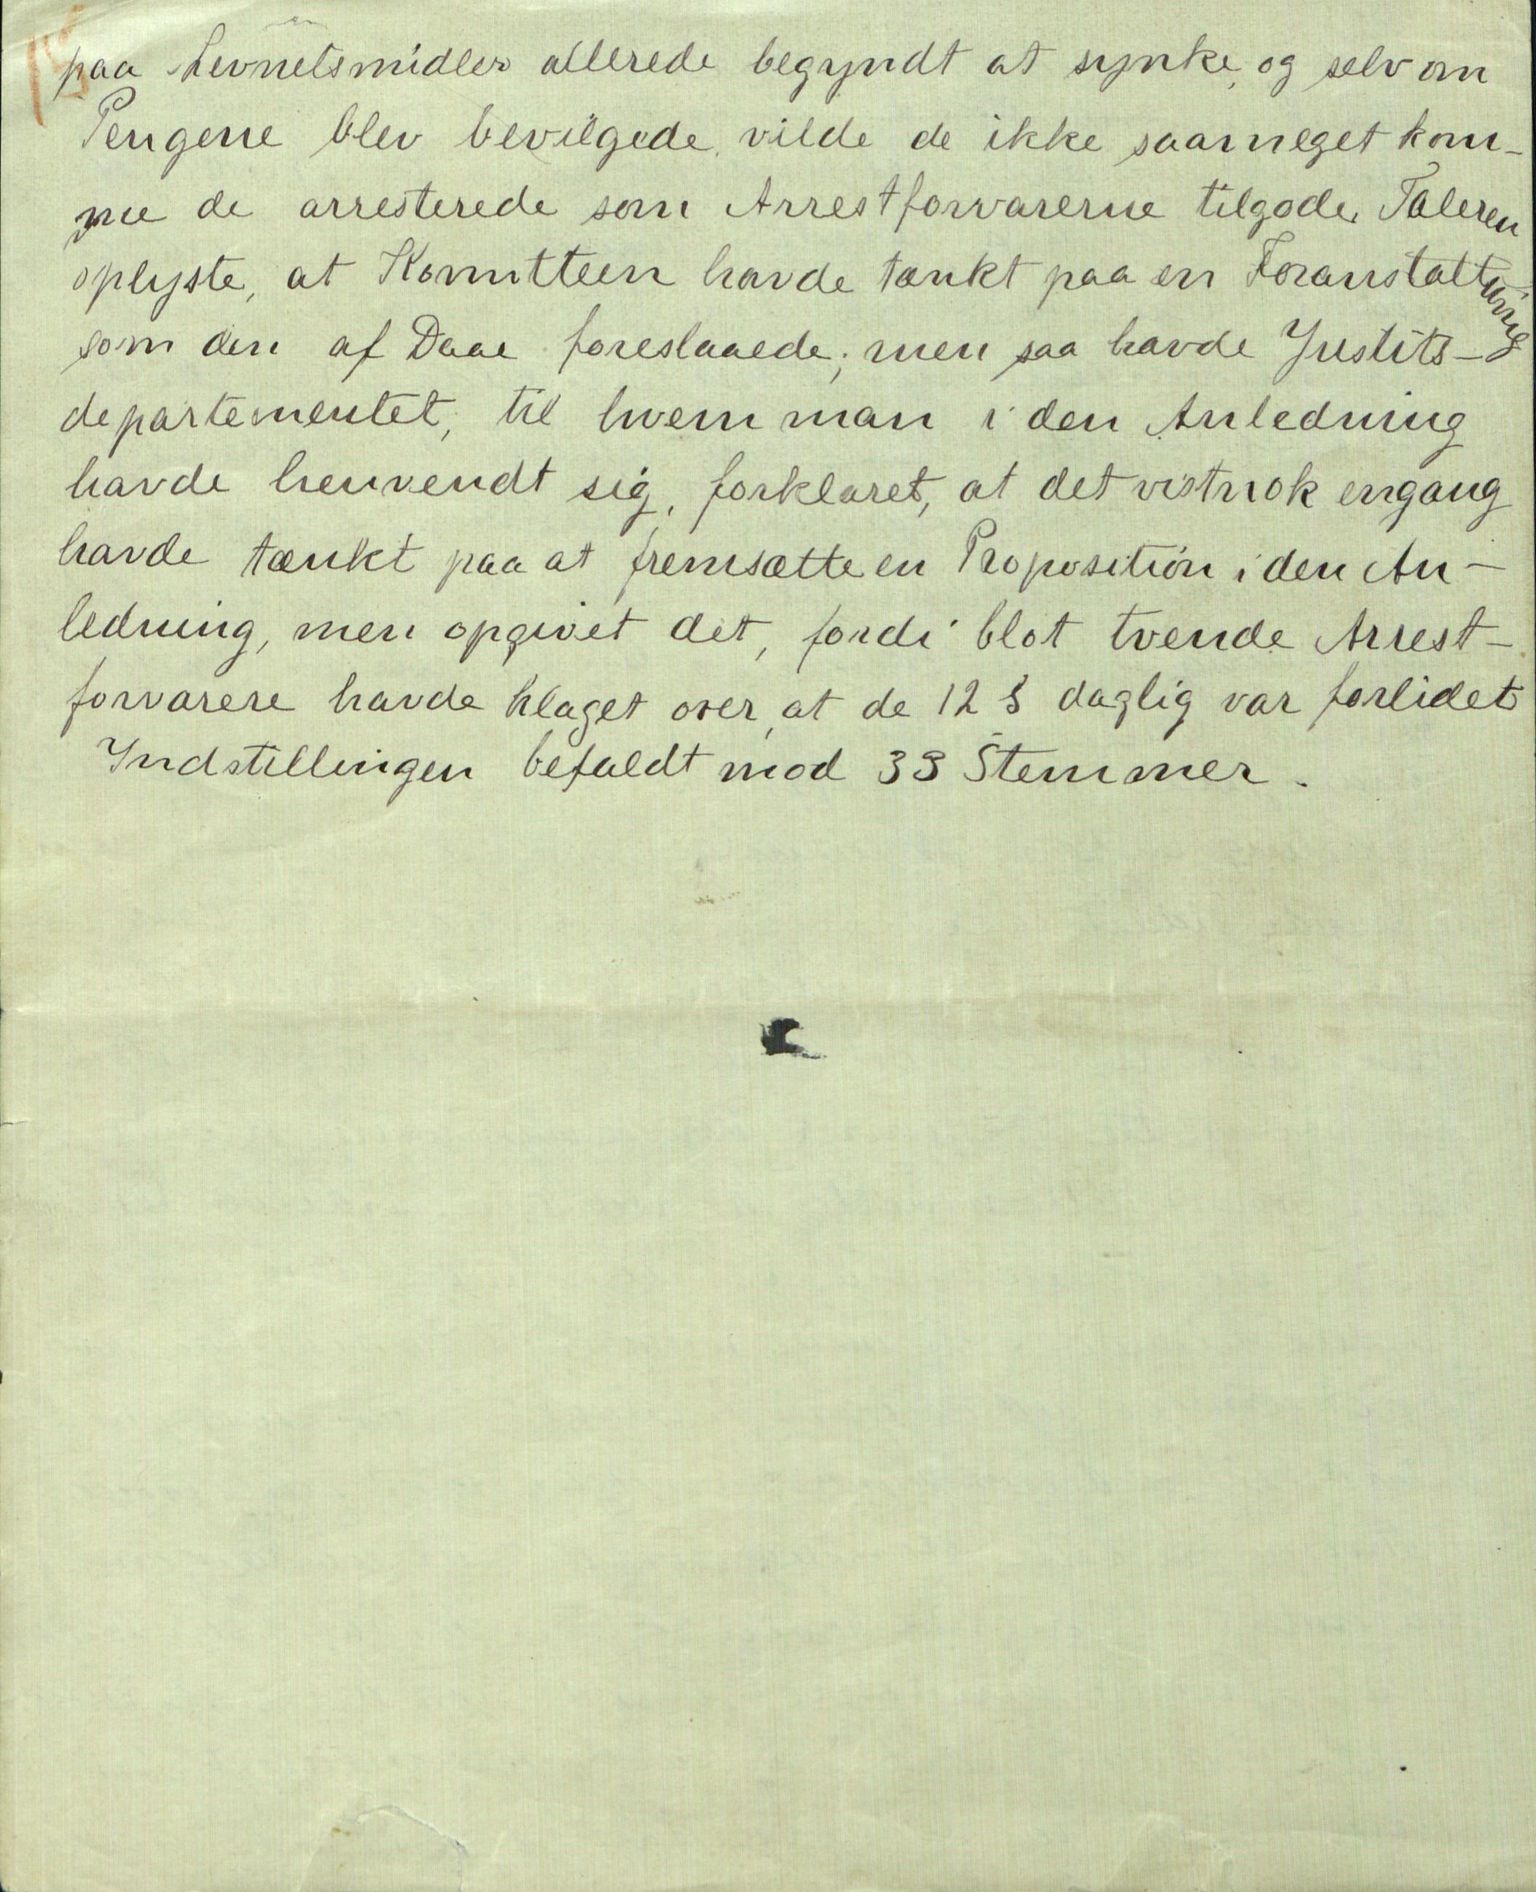 paa Levnetsmidler allerede begyndt at synke, og selv om
Pengene blev bevilgede, vilde de ikke saameget kom-
me de arresterede som Arrestforvarerne tilgode. Taleren
oplyste, at Komitteen havde tænkt paa en Foranstaltning
som den af Daae foreslaaede; men saa havde Justits-
departementet, til hvem man i den Anledning
havde henvendt sig, forklaret, at det vistnok engang
havde tænkt paa at fremsætte en Proposition i den An-
ledning, men opgivet det, fordi blot tvende Arrest-
forvarere havde klaget over, at de 12 s daglig var forlidet
Indstillingen befaldt mod 33 Stemmer.